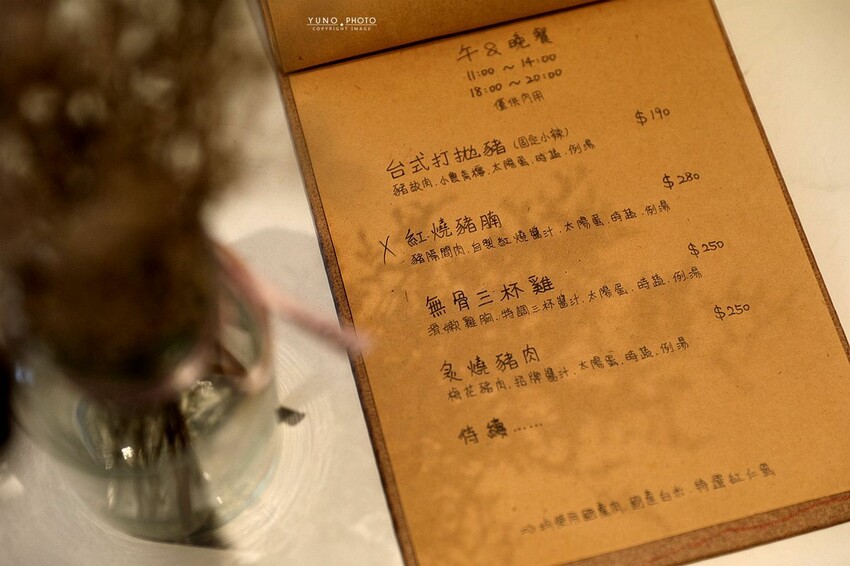 YUNO PHOTO
COPYRIGHT IMAGE
午&晚餐
11:00 ~ 14:00
18:00 ~ 20:00
僅供內用
台式打拋豬 (固定小辣) $190
豬故肉.小農青檸.太陽蛋.時蔬.例湯
X 紅燒豬腩 $280
豬隔間肉.自製紅燒醬汁.太陽蛋.時蔬.例湯
無骨三杯雞 $250
滑嫩雞胸.特調三杯醬汁.太陽蛋.時蔬.例湯
炙燒豬肉 $250
梅花豬肉.招牌醬汁.太陽蛋.時蔬.例湯
待續......
均使用國產肉.國產白米.特選紅仁蛋